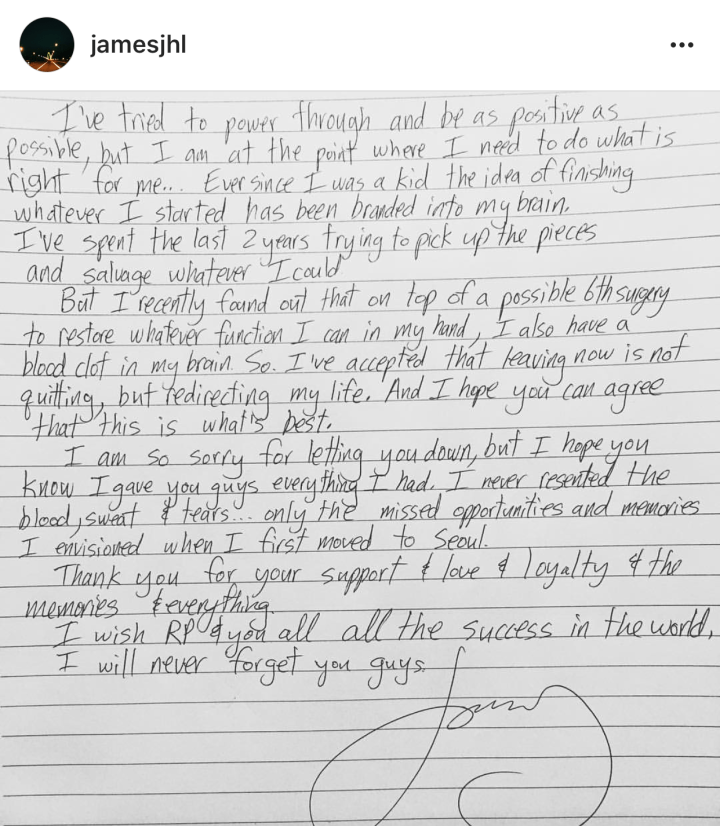 jamesjhl
I've tried to power through and be as positive as
possible, but I am at the point where I need to do what is
right for me... Ever since I was a kid the idea of finishing
whatever I started has been branded into my brain.
I've spent the last 2 years trying to pick up the pieces
and salvage whatever I could
But I recently found out that on top of a possible 6th surgery
to restore whatever function I can in my hand, I also have a
blood clot in my brain. So. I've accepted that leaving now is not
quitting, but redirecting my life. And I hope you can agree
that this is what's best.
I am so sorry for letting you down, but I hope you
know I gave you guys everything I had. I never resented the
blood, sweat & tears... only the missed opportunities and memories
I envisioned when I first moved to Seoul.
Thank you for your support & love & loyalty & the
memories & everything.
I wish RP & you all all the success in the world,
I will never forget you guys.